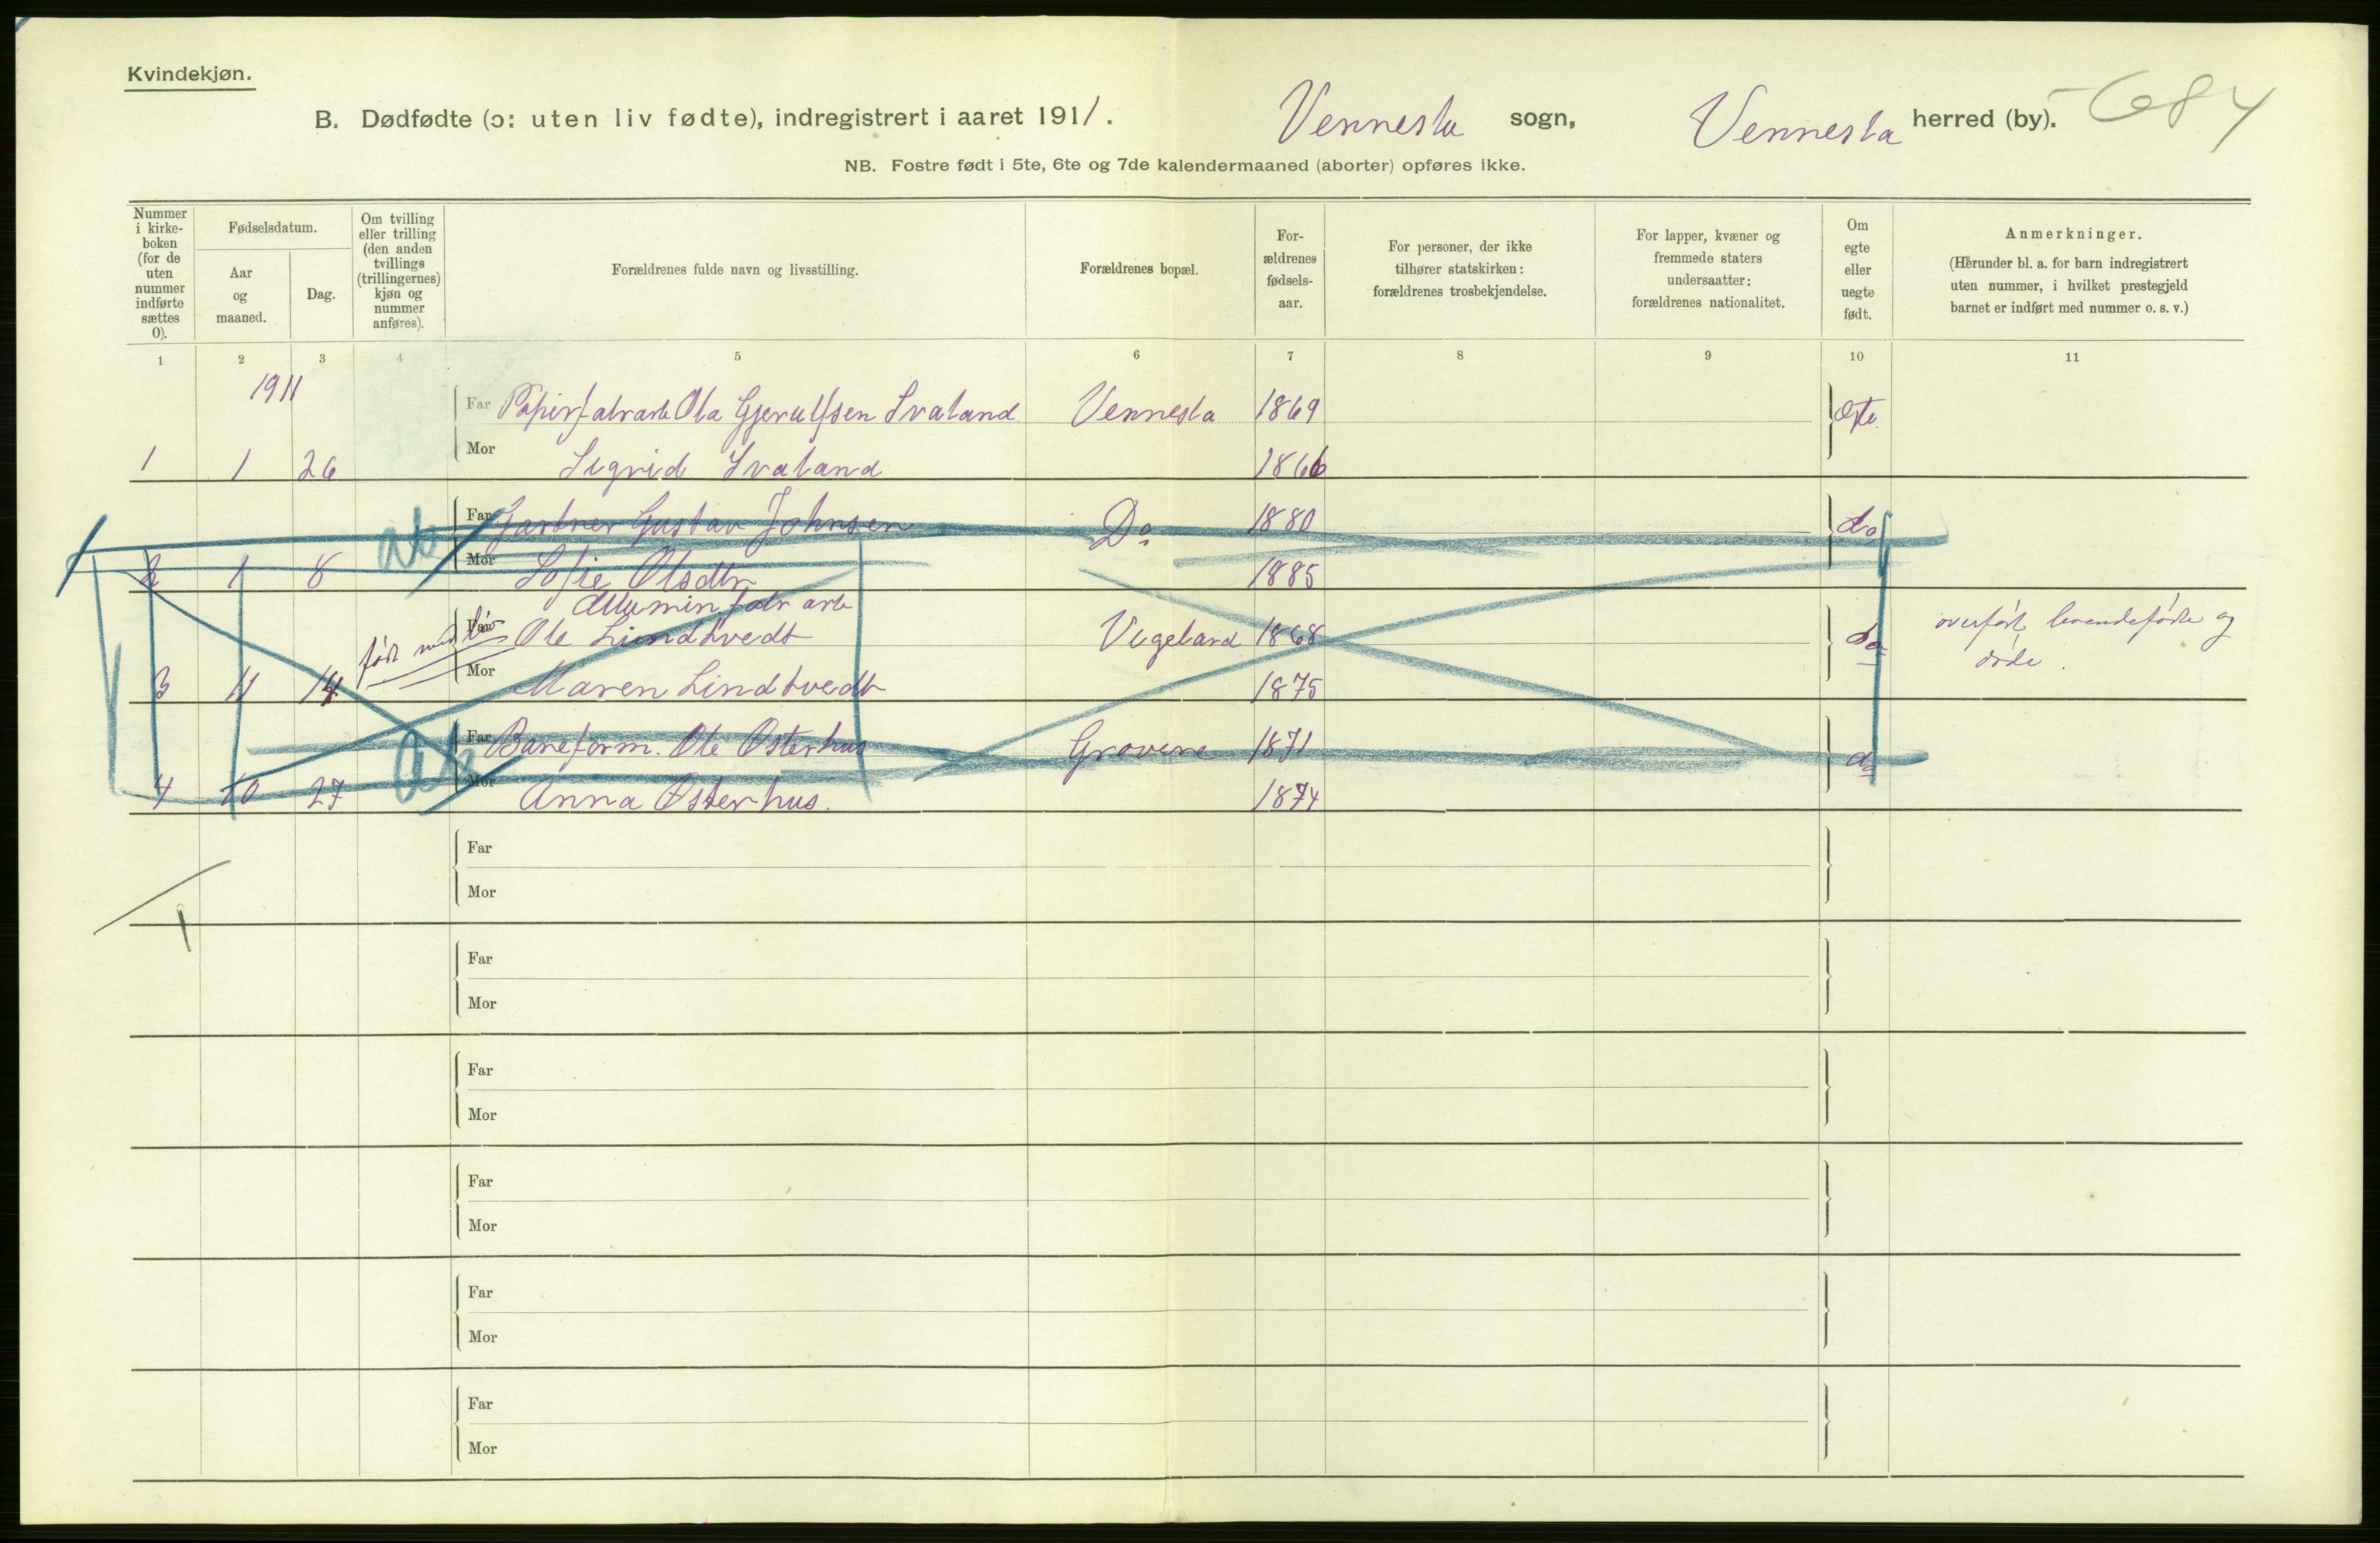 Kvindekjøn.
B. Dødfødte (ɔ: uten liv fødte), indregistrert i aaret 1911. Vennesla sogn, Vennesla herred (by). - 684
NB. Fostre født i 5te, 6te og 7de kalendermaaned (aborter) opføres ikke.
Nummer i kirke-boken (for de uten nummer indførte sættes 0).
Fødselsdatum.
Aar og maaned.
Dag.
Om tvilling eller trilling (den anden tvillings (trillingernes) kjøn og nummer anføres).
Forældrenes fulde navn og livsstilling.
Forældrenes bopæl.
For-ældrenes fødsels-aar.
For personer, der ikke tilhører statskirken: forældrenes trosbekjendelse.
For lapper, kvæner og fremmede staters undersaatter: forældrenes nationalitet.
Om egte eller uegte født.
Anmerkninger.
(Herunder bl. a. for barn indregistrert uten nummer, i hvilket prestegjeld barnet er indført med nummer o. s. v.)
1 2 3 4 5 6 7 8 9 10 11
1911
Far Papirfabrarb Ola Gjerulfsen Svaland Vennesla 1869 Egte
1 1 26 Mor Sigrid Svaland 1866
Far Gartner Gustav Johnsen Do 1880 do
ab
2 1 8 Mor Sofie Olsdtr 1885
Allumin fabr arb
Far Ole Lindtvedt Vigeland 1868 do overført levendefødte og
født med liv
døde.
3 11 14 Mor Maren Lindtvedt 1875
Far Baneform. Ole Østerhus Grovene 1871 do
ab
4 10 27 Mor Anna Østerhus. 1874
Far
Mor
1
Far
Mor
Far
Mor
Far
Mor
Far
Mor
Far
Mor